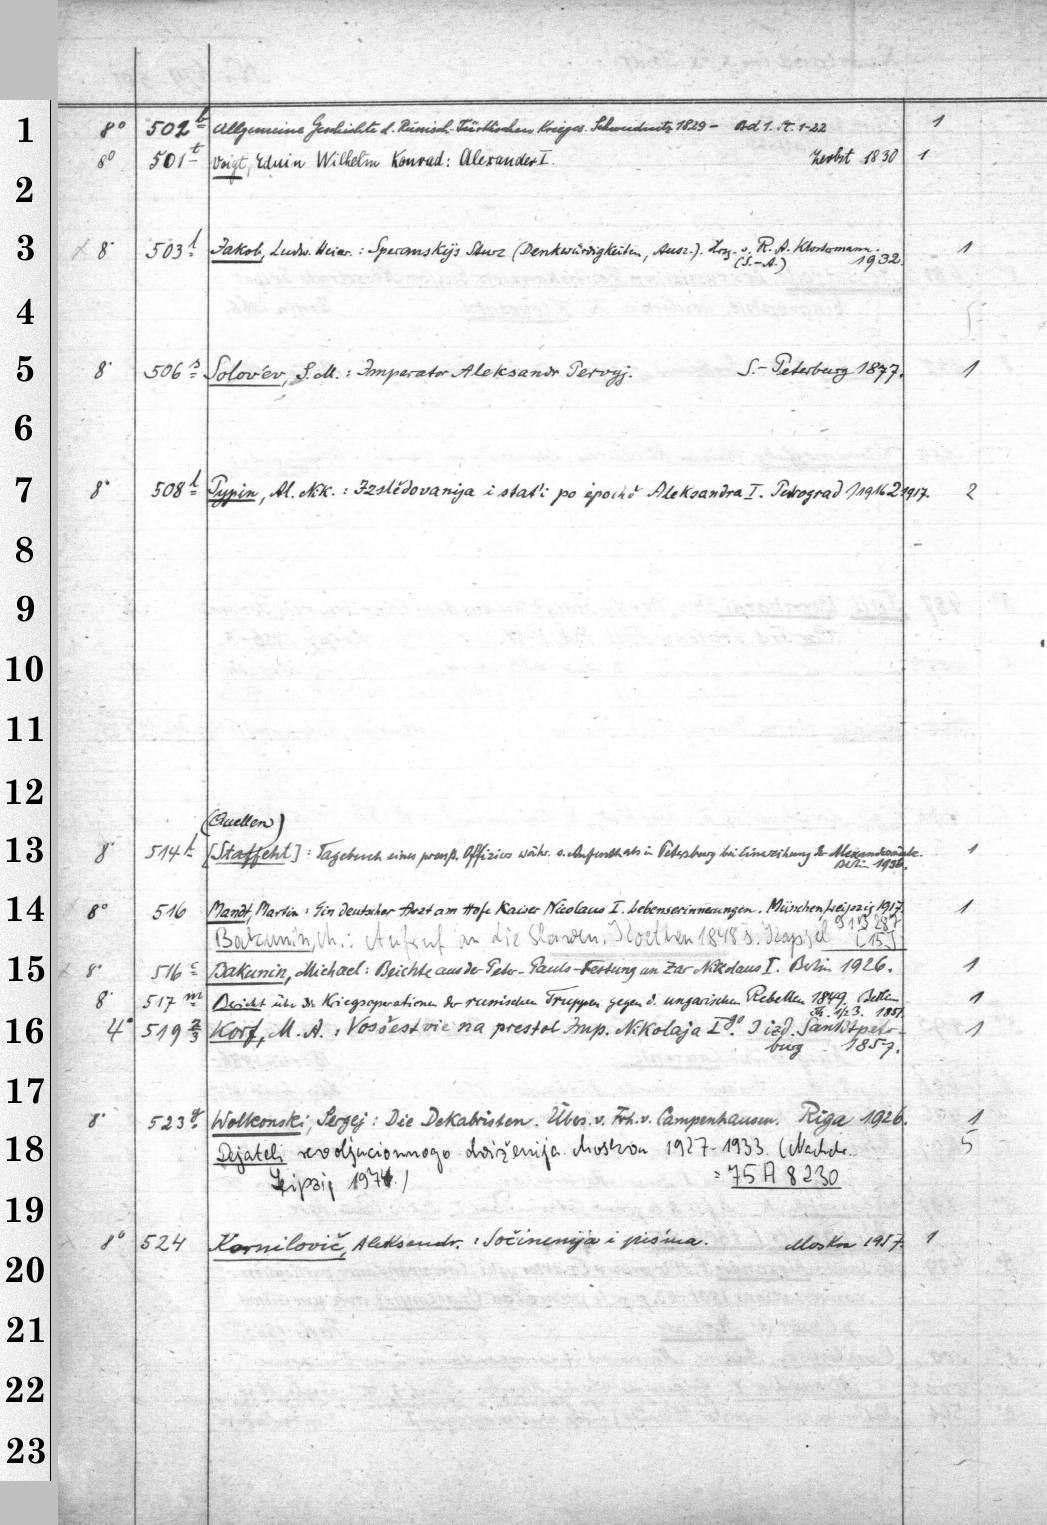 1 8° 502 b Allgemeine Geschichte d. Russisch-Türkischen Krieges. Schweidnitz 1829 - Bd 1. H. 1-22 1
8° 501 t Voigt, Eduin Wilhelm Konrad: Alexander I. Zerbst 1830 1
2
3 8° 503 l Jakob, Ludw. Heinr.: Speranskijs Sturz (Denkwürdigkeiten, Ausz.). Hrsg. v. R. A. Klostermann. 1
(S.-A.) 1932.
4
5 8° 506 s Solov'ev, S. M.: Imperator Aleksandr Pervyj. S.-Peterburg 1877. 1
6
7 8° 508 l Pypin, Al. Nik.: Izslědovanija i stat'i po epochě Aleksandra I. Petrograd 1 1916 2 1917. 2
8
9
10
11
12
(Quellen)
13 8° 514 [Staffeht]: Tagebuch eines preuß. Offiziers währ. s. Aufenthalts in Petersburg bei Einweihung der Alexandersäule. 1
Berlin
14 8° 516 Mandt, Martin: Ein deutscher Arzt am Hofe Kaiser Nicolaus I. Lebenserinnerungen. München, Leipzig 1917. 1
Bakunin, M.: Aufruf an die Slaven. Koethen 1848 [15]
15 8° 516 c Bakunin, Michael: Beichte aus der Peter-Pauls-Festung an Zar Nikolaus I. Berlin 1926. 1
8° 517 m Bericht über die Kriegsoperationen der russischen Truppen gegen d. ungarischen Rebellen 1849. Berlin 1
Th. 1/2 3. 1851.
16 4° 519 Korf, M. A.: Vosšestvie na prestol Imp. Nikolaja I go. 3 izd. Sanktpeter- 1
burg 1857.
17
8° 523 g Wolkonski, Sergej: Die Dekabristen. Übers. v. Frh. v. Campenhausen. Riga 1926. 1
18 Dejateli revoljucionnogo dviženija. Moskva 1927-1933. (Nachdr. 5
Leipzig 1974.) = 75 A 8230
19
8° 524 Kornilovič, Aleksandr.: Sočinenija i pis'ma. Moskva 1957. 1
20
21
22
23